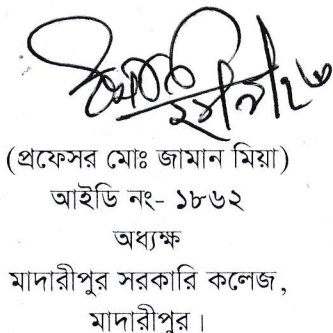 (প্রফেসর মোঃ জামান মিয়া)
আইডি নং- ১৮৬২
অধ্যক্ষ
মাদারীপুর সরকারি কলেজ,
মাদারীপুর।